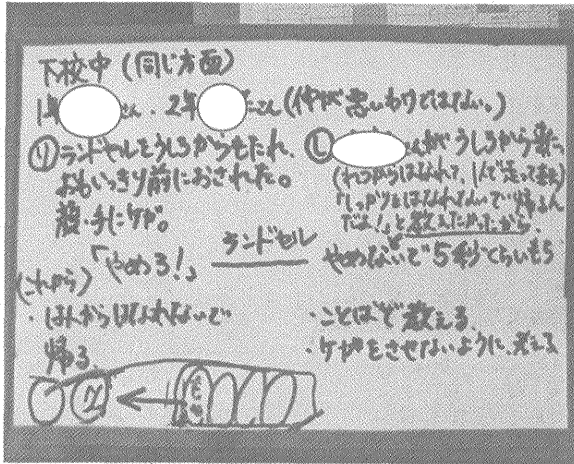 下校中(同じ方面)
1年 さん・2年 さん(仲が悪いわけではない。)
リ ランドセルをうしろからもたれ、
おもいっきり前におされた。
腕・手にケガ。
「やめろ!」
ランドセル
(これから)
・はんからはなれないで
帰る
し がうしろから
(れつからはなれて、1人で走って
「しっかりとはなれないで帰るん
だよ!」と教えたかったから、
やめないで5秒ぐらいもう
・ことばで教える
・ケガをさせないように、考える
リ